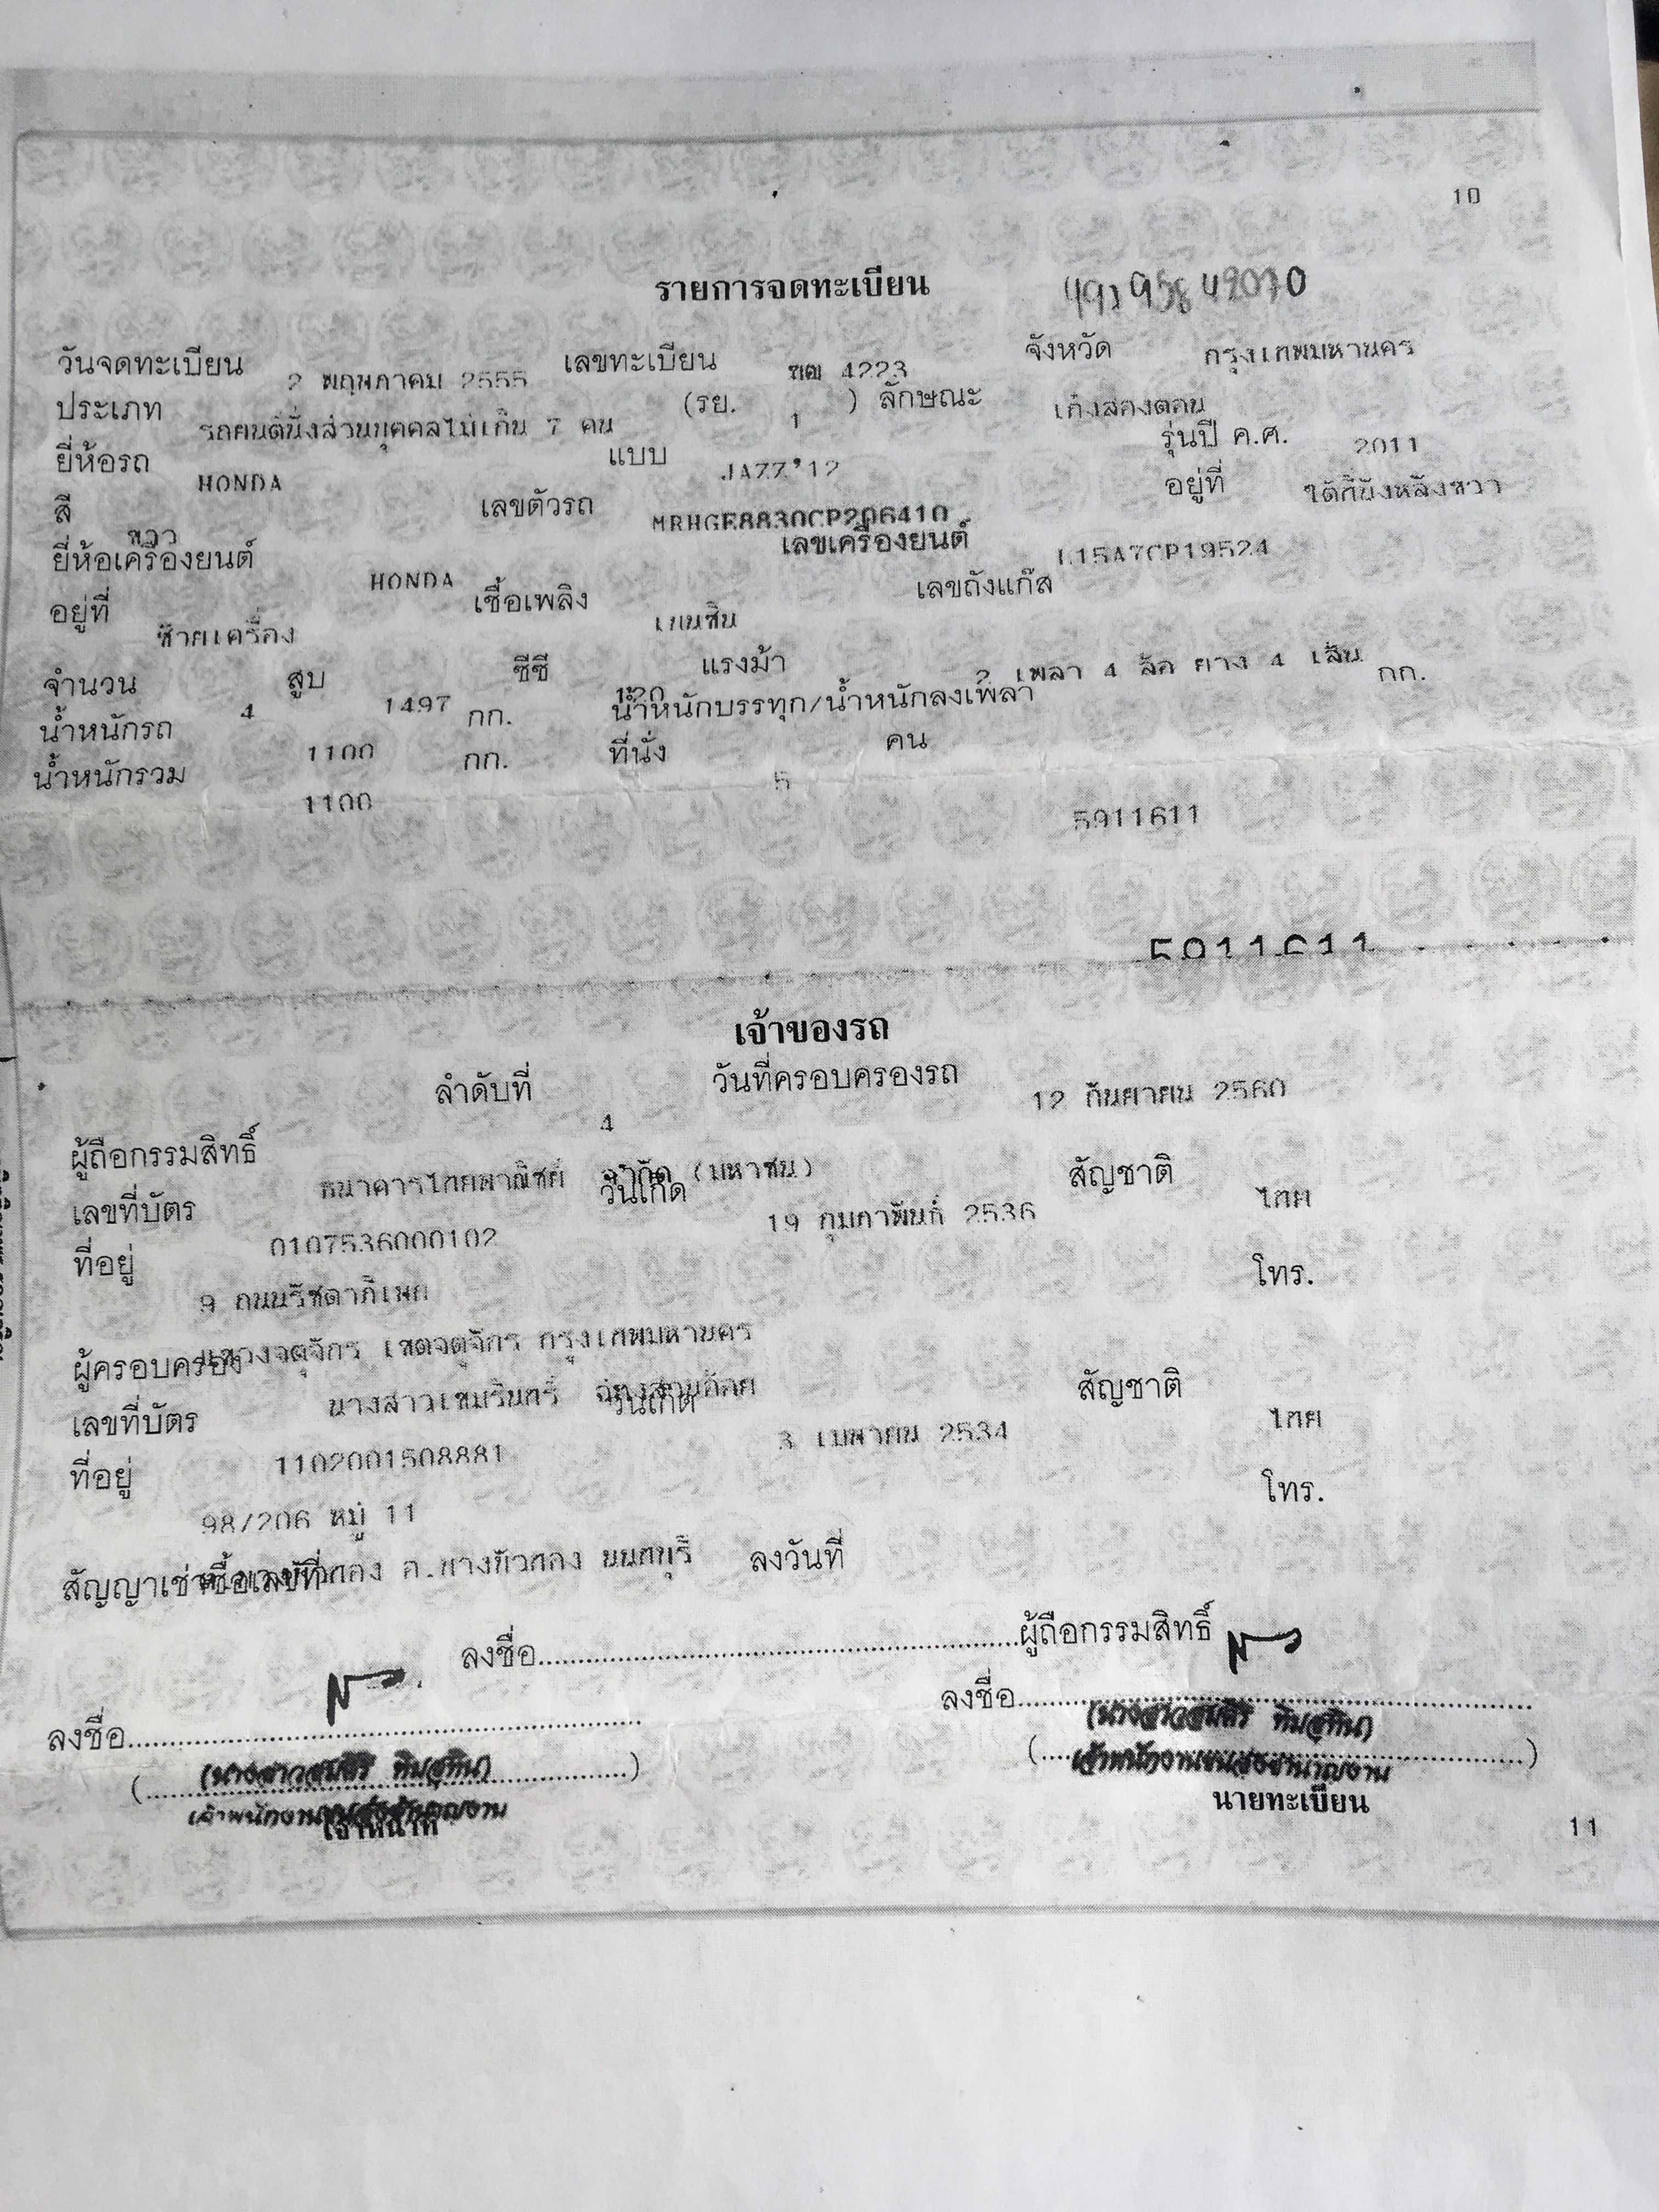 10
รายการจดทะเบียน
วันจดทะเบียน 2 พฤษภาคม 2555 เลขทะเบียน 4223 จังหวัด กรุงเทพมหานคร
ประเภท รถยนต์นั่งส่วนบุคคลไม่เกิน 7 คน (รย. 1 ) ลักษณะ เก๋งสองตอน
ยี่ห้อรถ HONDA แบบ JAZZ'12 รุ่นปี ค.ศ. 2011
สี ขาว เลขตัวรถ MRHGE8830CP206410 อยู่ที่ ใต้ที่นั่งหลังขวา
ยี่ห้อเครื่องยนต์ HONDA เลขเครื่องยนต์ L15A7CP19524
อยู่ที่ ซ้ายเครื่อง เชื้อเพลิง เบนซิน เลขถังแก๊ส
จำนวน 4 สูบ 1497 ซีซี 120 แรงม้า 2 เพลา 4 ล้อ ยาง 4 เส้น
น้ำหนักรถ 1100 กก. น้ำหนักบรรทุก/น้ำหนักลงเพลา กก.
น้ำหนักรวม 1100 กก. ที่นั่ง 5 คน
5911611
5911611
เจ้าของรถ
ลำดับที่ 4 วันที่ครอบครองรถ 12 กันยายน 2560
ผู้ถือกรรมสิทธิ์ ธนาคารไทยพาณิชย์ จำกัด (มหาชน) สัญชาติ ไทย
เลขที่บัตร 0107536000102 วันเกิด 19 กุมภาพันธ์ 2536
ที่อยู่ 9 ถนนรัชดาภิเษก โทร.
แขวงจตุจักร เขตจตุจักร กรุงเทพมหานคร
ผู้ครอบครอง นางสาวเขมรินทร์ สัญชาติ ไทย
เลขที่บัตร 1102001508881 วันเกิด 3 เมษายน 2534
ที่อยู่ 98/206 หมู่ 11 โทร.
อ.บางบัวทอง นนทบุรี
สัญญาเช่าซื้อเลขที่ ลงวันที่
ลงชื่อ ผู้ถือกรรมสิทธิ์
ลงชื่อ ลงชื่อ
เจ้าพนักงานขนส่งชำนาญงาน เจ้าพนักงานขนส่งชำนาญงาน
เจ้าหน้าที่ นายทะเบียน
11